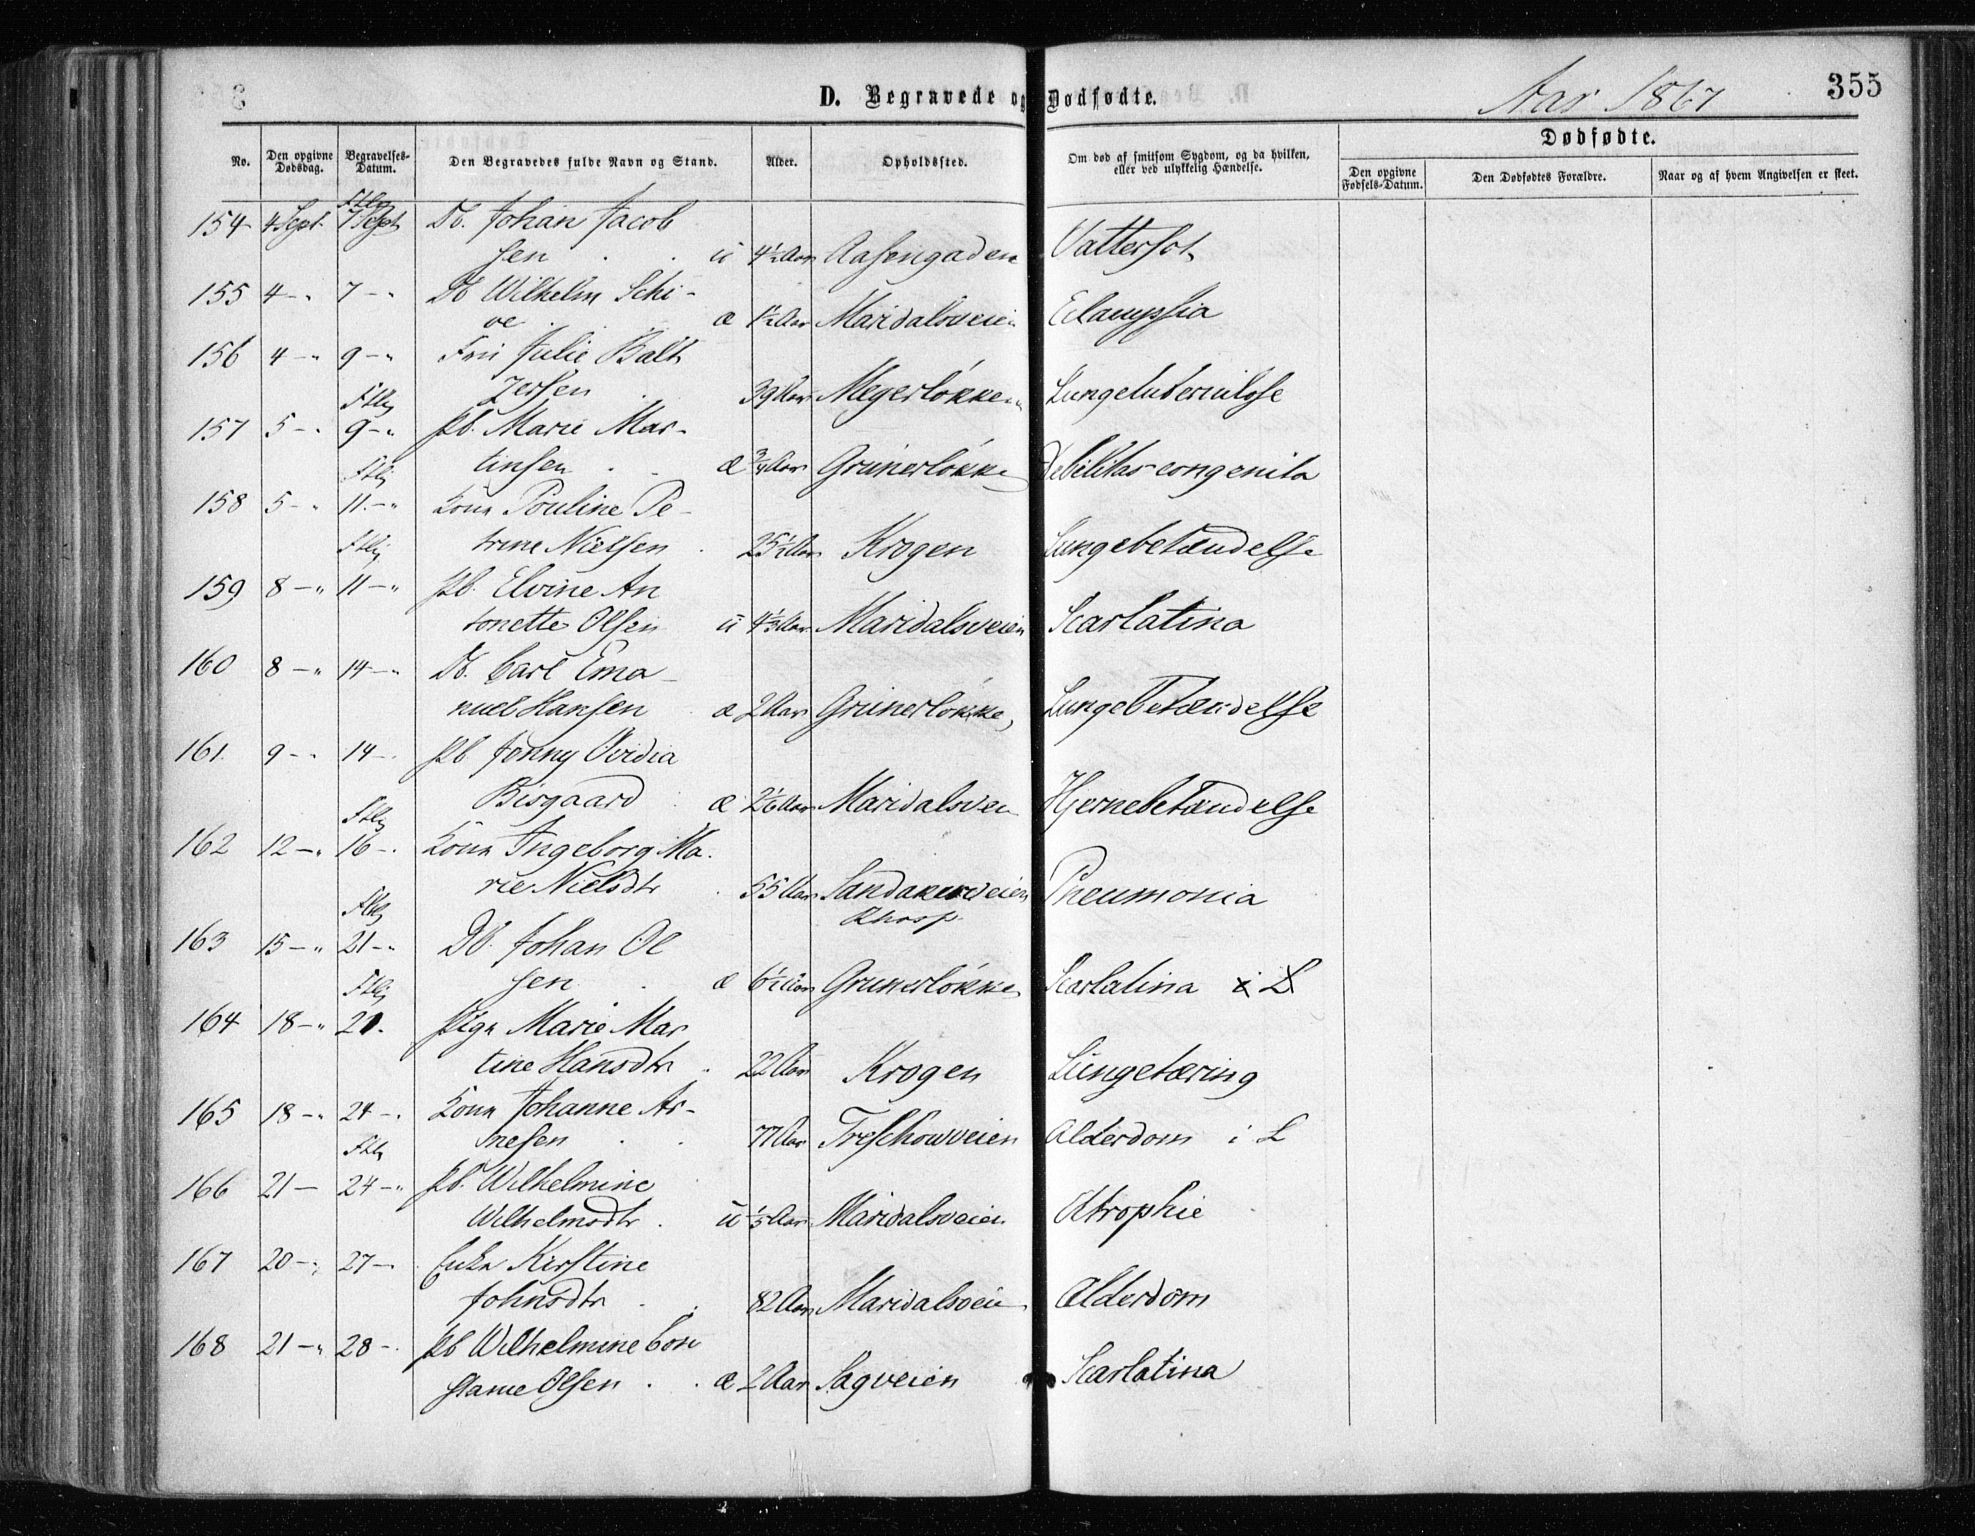 D. Begravede og Dødfødte.
Aar 1867
355
No.
Den opgivne Dødsdag.
Begravelses-Datum.
Den Begravedes fulde Navn og Stand.
Alder.
Opholdssted.
Om død af smitsom Sygdom, og da hvilken, eller ved ulykkelig Hændelse.
Dødfødte.
Den opgivne Fødsels-Datum.
Den Dødfødtes Forældre.
Naar og af hvem Angivelsen er skeet.
154 4 Sept. 7 Sept Db. Johan Jacob
sen u 4½ Aar Aasengaden Vattersot
155 4 – " 7 – " Db Wilhelm Schi-
ve æ 1½ Aar Maridalsveien Eclampsia
156 4 – " 9 – " Fru Julie Balt
zersen 39 Aar Meyerløkken Lungetuberculose
157 5 – " 9 – " Pb. Marie Mar-
tinsen æ ¾ Aar Grünerløkke Debilitas congenita
158 5 – " 11 – " Kone Pouline Pe-
trine Nielsen 25½ Aar Krogen Lungebetændelse
159 8 – " 11 – " Pb. Elvine An
tonette Olsen u Aar Maridalsveien Scarlatina
160 8 – " 14 – " Db. Carl Ema-
nuel Hansen æ 2 Aar Grünerløkke Lungebetændelse
161. 9 – " 14 – . Pb Jonny Ovidia
Bisgaard æ 2 1/6 Aar Maridalsvei Hjernebetændelse
162 12 – " 16 – . Kone Ingeborg Ma.
rie Nielsdtr 55 Aar Sandakerveien Pneumonia
163 15 – " 21 – " Db. Johan Ol
sen æ 6½ Aar Grünerløkke Scarlatina i L
164 18 – " 21. Pige Marie Mar
tine Hansdtr 22 Aar Krogen Lungetæring
165 18 – " 24 – . Kone Johanne Ar-
nesen 77 Aar Treschowveien Alderdom i L
166 21 – 24 – " Pb. Wilhelmine
Wilhelmsdtr. u Aar Maridalsveien Atrophie
167 20 – " 27 – . Enke Kirstine
Johnsdtr 82 Aar Maridalsveie Alderdom
168 21 – " 28 – . Pb Wilhelmine Con
stance Olsen æ 2 Aar Sagveien Scarlatina